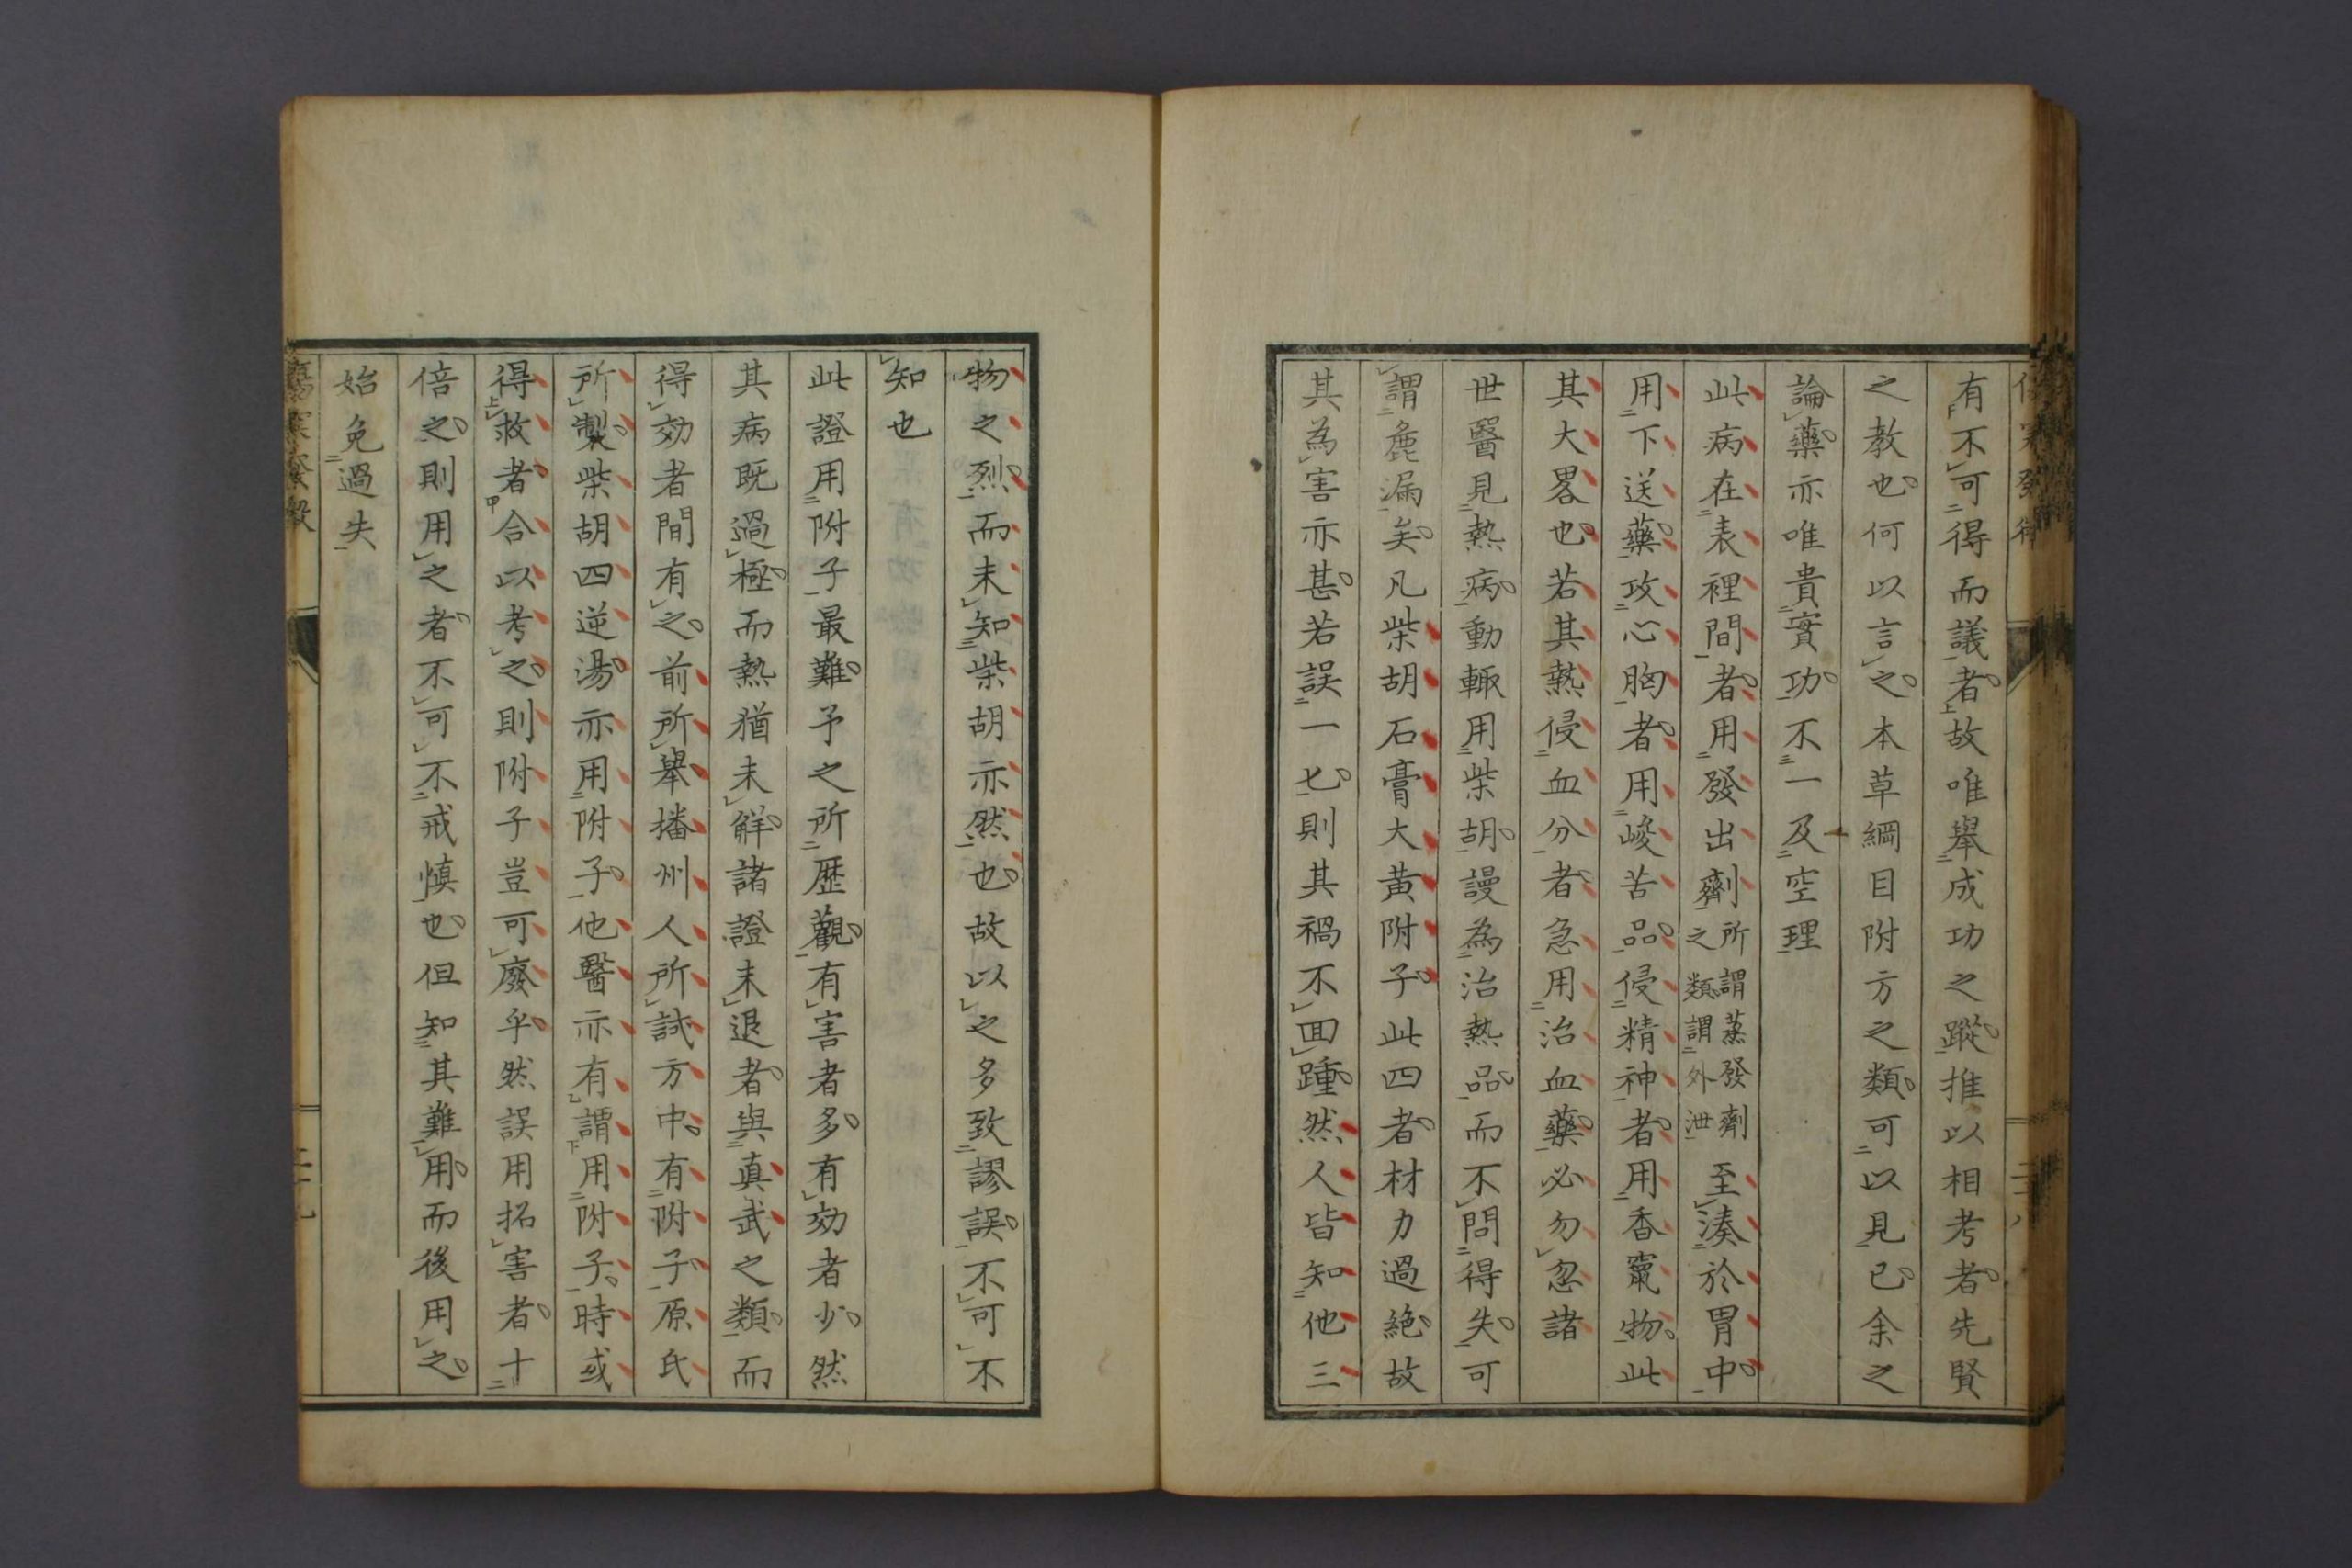 有不可得而議者故唯舉成功之蹤推以相考者先賢
之教也何以言之本草綱目附方之類可以見已余之
論藥亦唯貴實功不一及空理
此病在表裡間者用發出劑所謂蒸發劑之類謂外泄至湊於胃中
用下送藥攻心胸者用峻苦品侵精神者用香竄物此
其大畧也若其熱侵血分者急用治血藥必勿忽諸
世醫見熱病動輙用柴胡謾為治熱品而不問得失可
謂麁漏矣凡柴胡石膏大黃附子此四者材力過絶故
其為害亦甚若誤一匕則其禍不囬踵然人皆知他三
物之烈而未知柴胡亦然也故以之多致謬誤不可不
知也
此證用附子最難予之所歷觀有害者多有効者少然
其病既過極而熱猶未解諸證未退者與真武之類而
得効者間有之前所舉播州人所試方中有附子原氏
所製柴胡四逆湯亦用附子他醫亦有謂用附子時或
得救者合以考之則附子豈可廢乎然誤用招害者十
倍之則用之者不可不戒慎也但知其難用而後用之
始免過失